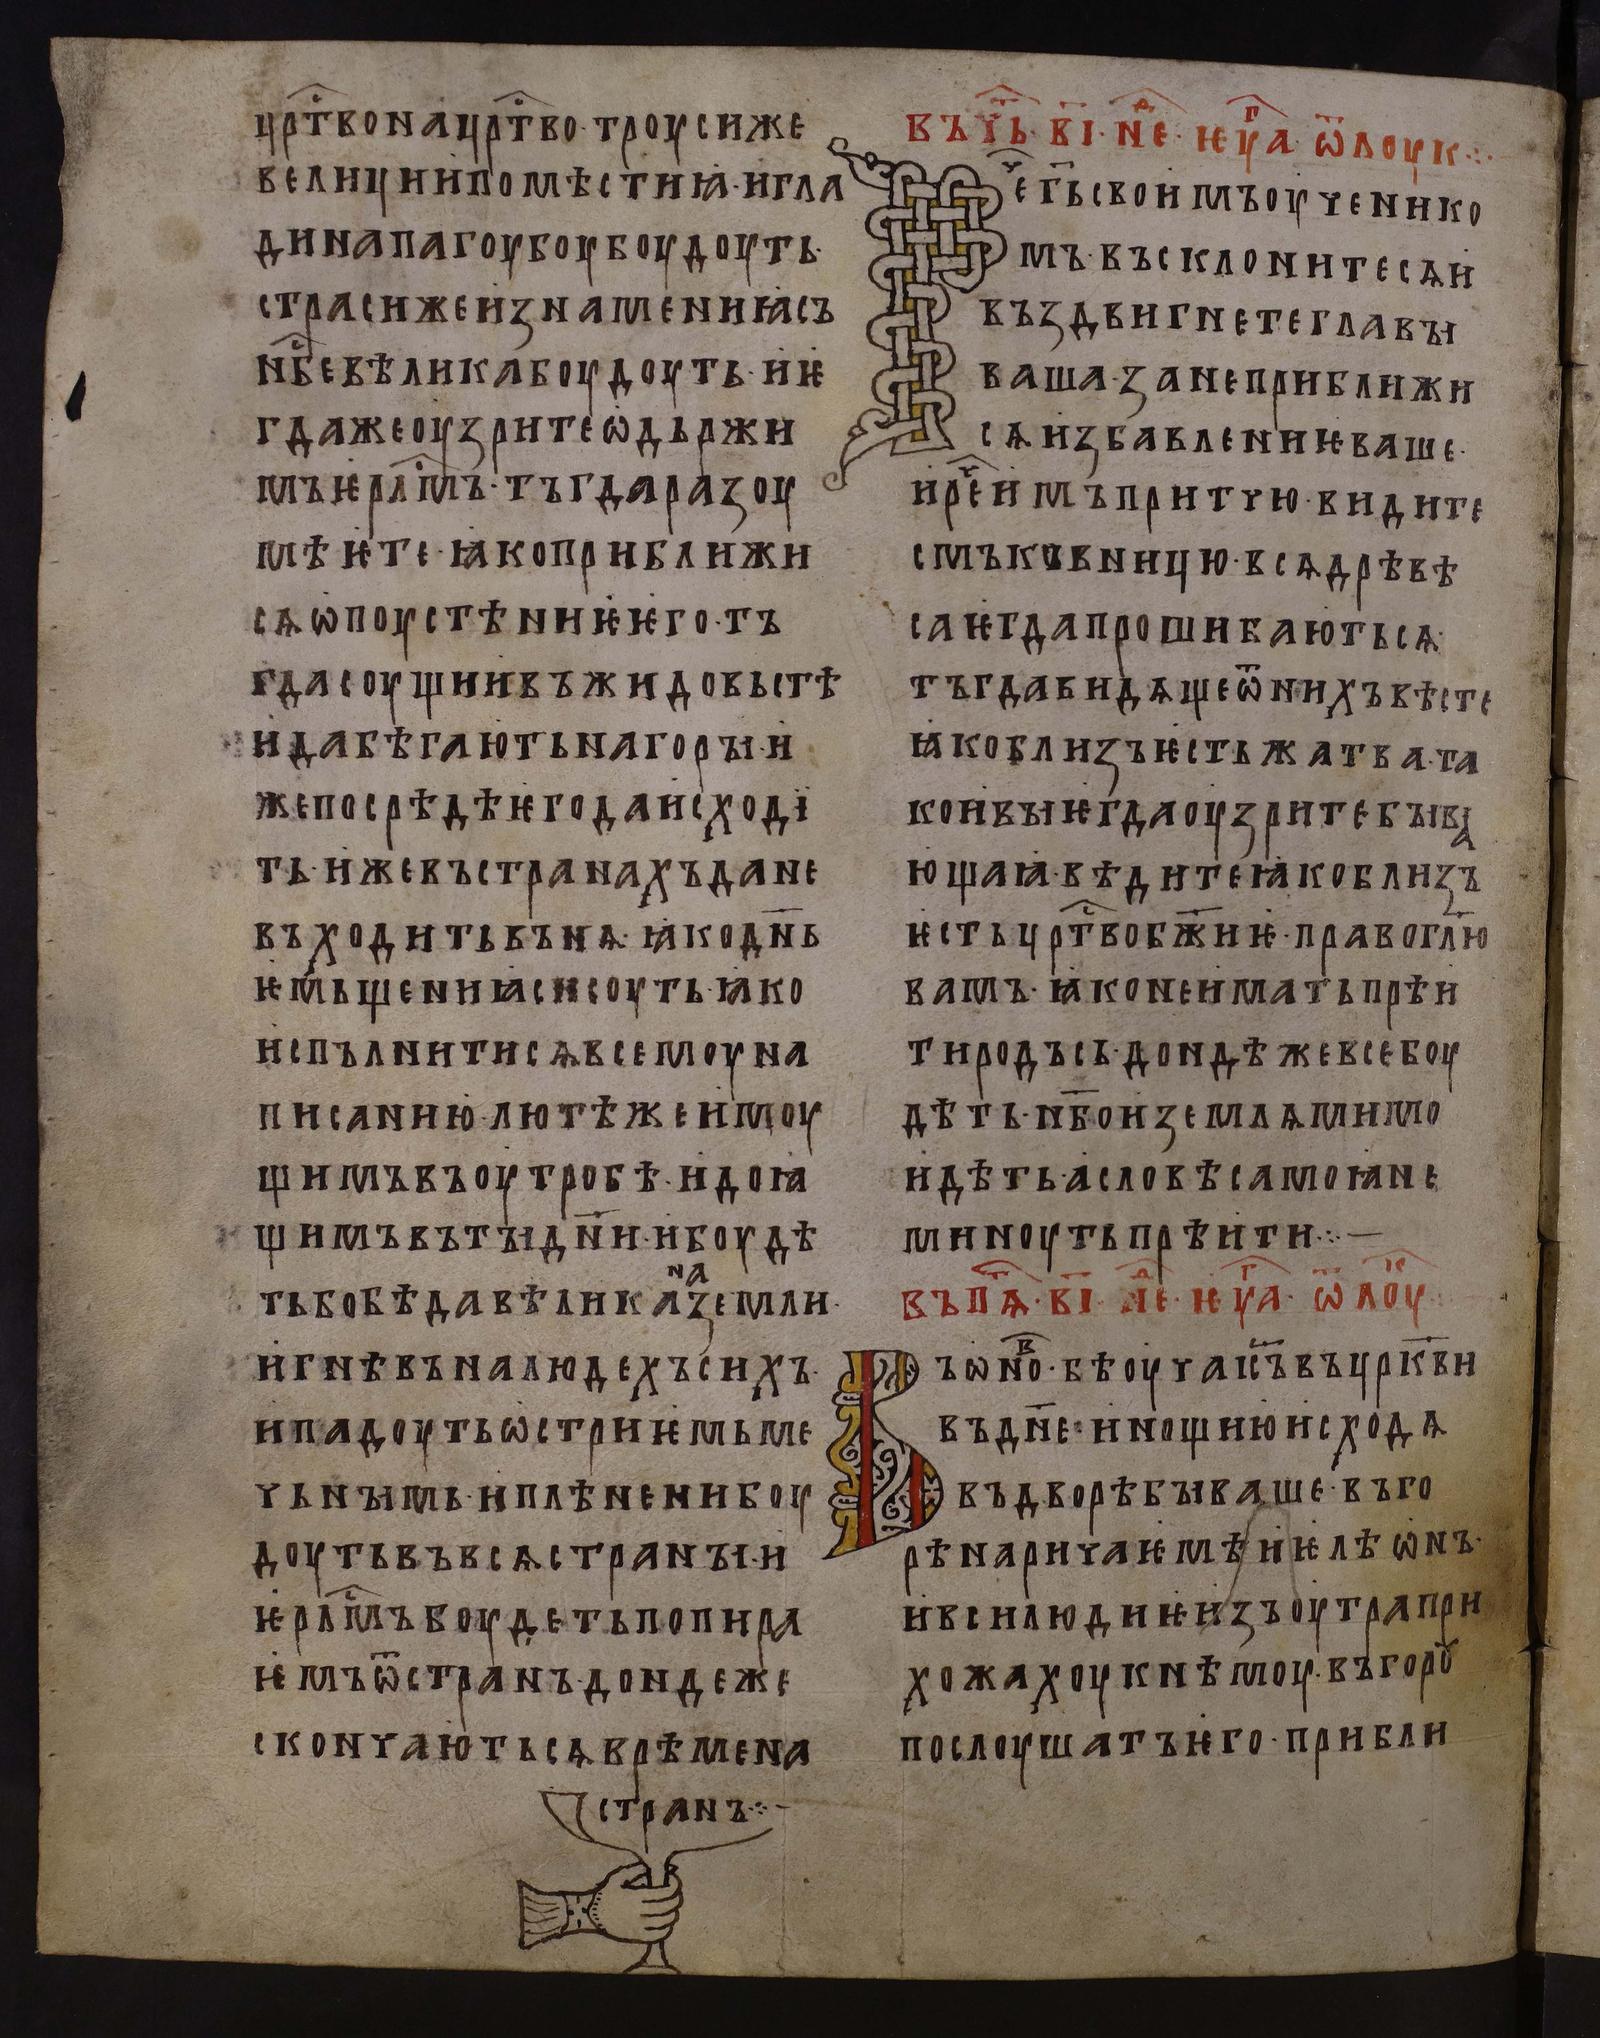 црⷭ҇твонацрⷭ҇тво·троусиже
велицииипомѣстиꙗ·игла
динапагоубоубоудоуть·
страсижеизнамениꙗсъ
нб҃севѣликабоудоуть·иѥ
гдажеоузритеѡдьржи
мъѥрлⷭ҇мъ·тъгдаразоу
мѣѥте·ꙗкоприближи
сѧѡпоустѣниѥѥго·тъ
гдасоущиивъжидовьстѣ
идабѣгаютьнагоры·и
жепосрѣдѣѥгодаисході
ть·ижевъстранахъдане
въходитьвънѧ·ꙗкодн҃ь
ѥмьщениꙗсисоуть·ꙗко
испълнитисѧвсемоуна
писанию·лютѣжеимоу
щимъвъоутробѣ·идоꙗ
щимъвътыдн҃и·ибоудѣ
тьбобѣдавѣликаⷩ҇ⷶземли·
игнѣвъналюдехъсихъ·
ипадоутьѡстриѥмьме
чьнымь·иплѣненибоу
доутьвъвсѧстраны·и
ѥрлⷭ҇мъбоудетьпопира
ѥмъѿстранъ·дондеже
скончаютьсѧврѣмена
странъ·:·-
въчⷮь·в҃і·нⷣе·ѥуⷢа·ѿлоук·:·
Рⷱегⷭ҇ьсвоимъоученико
мъ·въсклонитесѧи
въздвигнетеглавы
ваша·занеприближи
сѧизбавлениѥваше·
ирⷱеимъпритчю·видите
смъковницю·всѧдрѣвѣ
саѥгдапрошибаютьсѧ·
тъгдавидѧщеѿнихъвѣсте
ꙗкоблизъѥстьжатва·та
коивыѥгдаоузритебыва
ющаꙗ·вѣдитеꙗкоблизъ
ѥстьцрⷭ҇твобж҃иѥ·правоглю҃
вамъ·ꙗконеиматьпрѣи
тиродъсь·дондѣжевсебоу
дѣть·нб҃оиземлѧмимо
идѣть·асловѣсамоꙗне
миноутьпрѣити·:·—
въпⷮѧ·в҃і·нⷣе·ѥуⷢа·ѿлоуⷦ
Въѡноⷡ·бѣоучаис҃ъвъцрк҃ви
въдн҃е·инощиюисходѧ
въдворѣбываше·въго
рѣнаричаѥмѣиѥлѣѡнъ·
ивсилюдиѥизъоутрапри
хожахоукнѣмоу·въгороу
послоушатъѥго·прибли